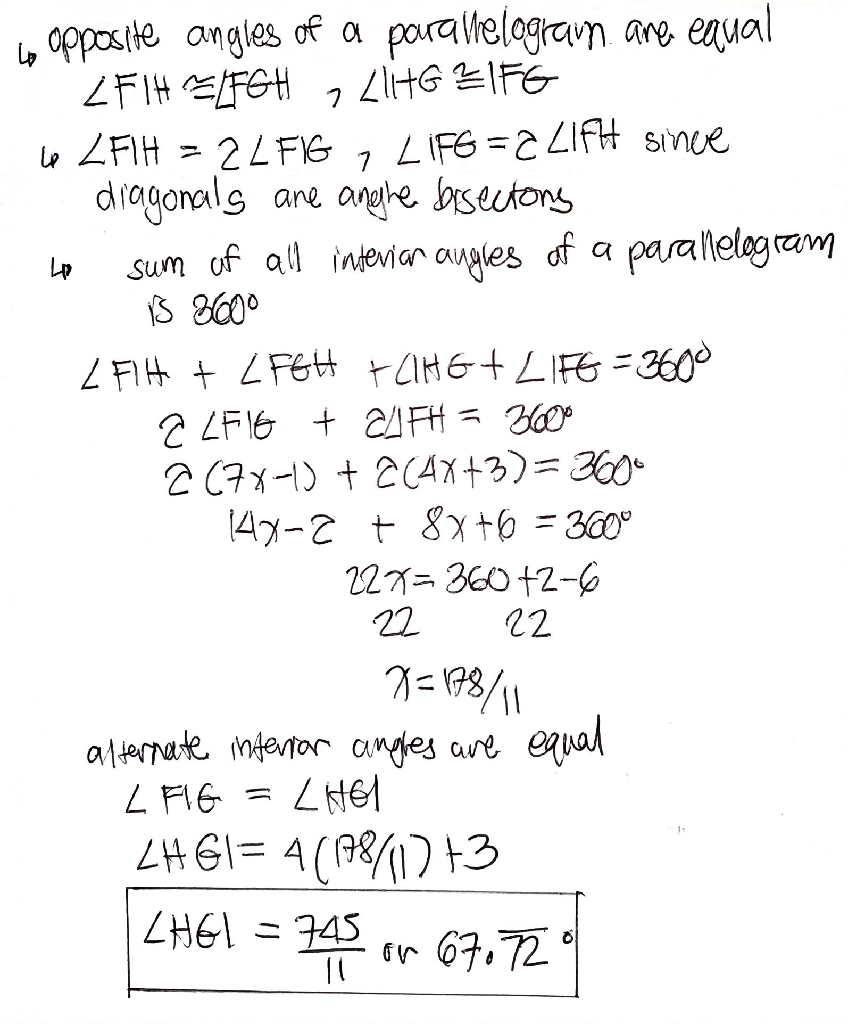 ↳ opposite angles of a parallelogram are equal
∠FIH ≅ ∠FGH , ∠IHG ≅ IFG
↳ ∠FIH = 2∠FIG , ∠IFG = 2∠IFH since
diagonals are angle bisectors
↳ sum of all interior angles of a parallelogram
is 360°
∠FIH + ∠FGH + ∠IHG + ∠IFG = 360°
2∠FIG + 2∠IFH = 360°
2(7x-1) + 2(4x+3) = 360°
14x-2 + 8x+6 = 360°
22x = 360+2-6
22 22
x = 178/11
alternate interior angles are equal
∠FIG = ∠HGI
∠HGI = 4(178/11)+3
∠HGI = 745/11 or 67.7̅2̅°